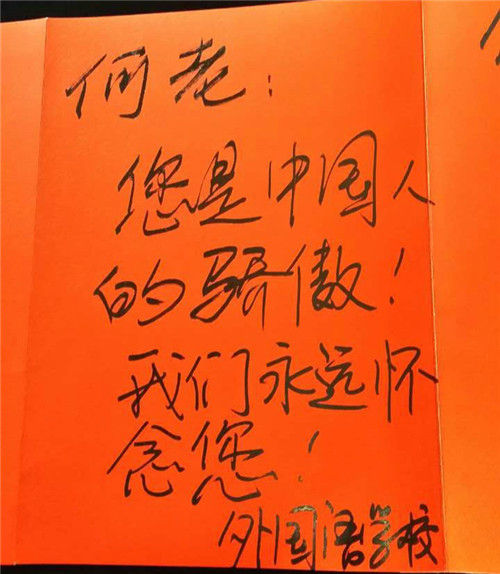 何老：
您是中国人
的骄傲！
我们永远怀
念您！
外国语学校